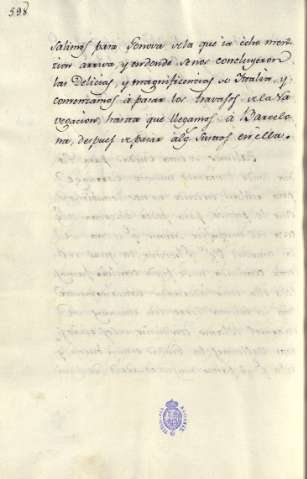 598
Salimos para Genova de la que ia echo men-
zion arriva, y en donde se nos concluyeron
las Delicias, y magnificencias de Italia, y
comenzamos à pasar los travajos de la Na-
vegacion, hasta que llegamos à Barcelo-
na, despues de pasar alg.
en ella.